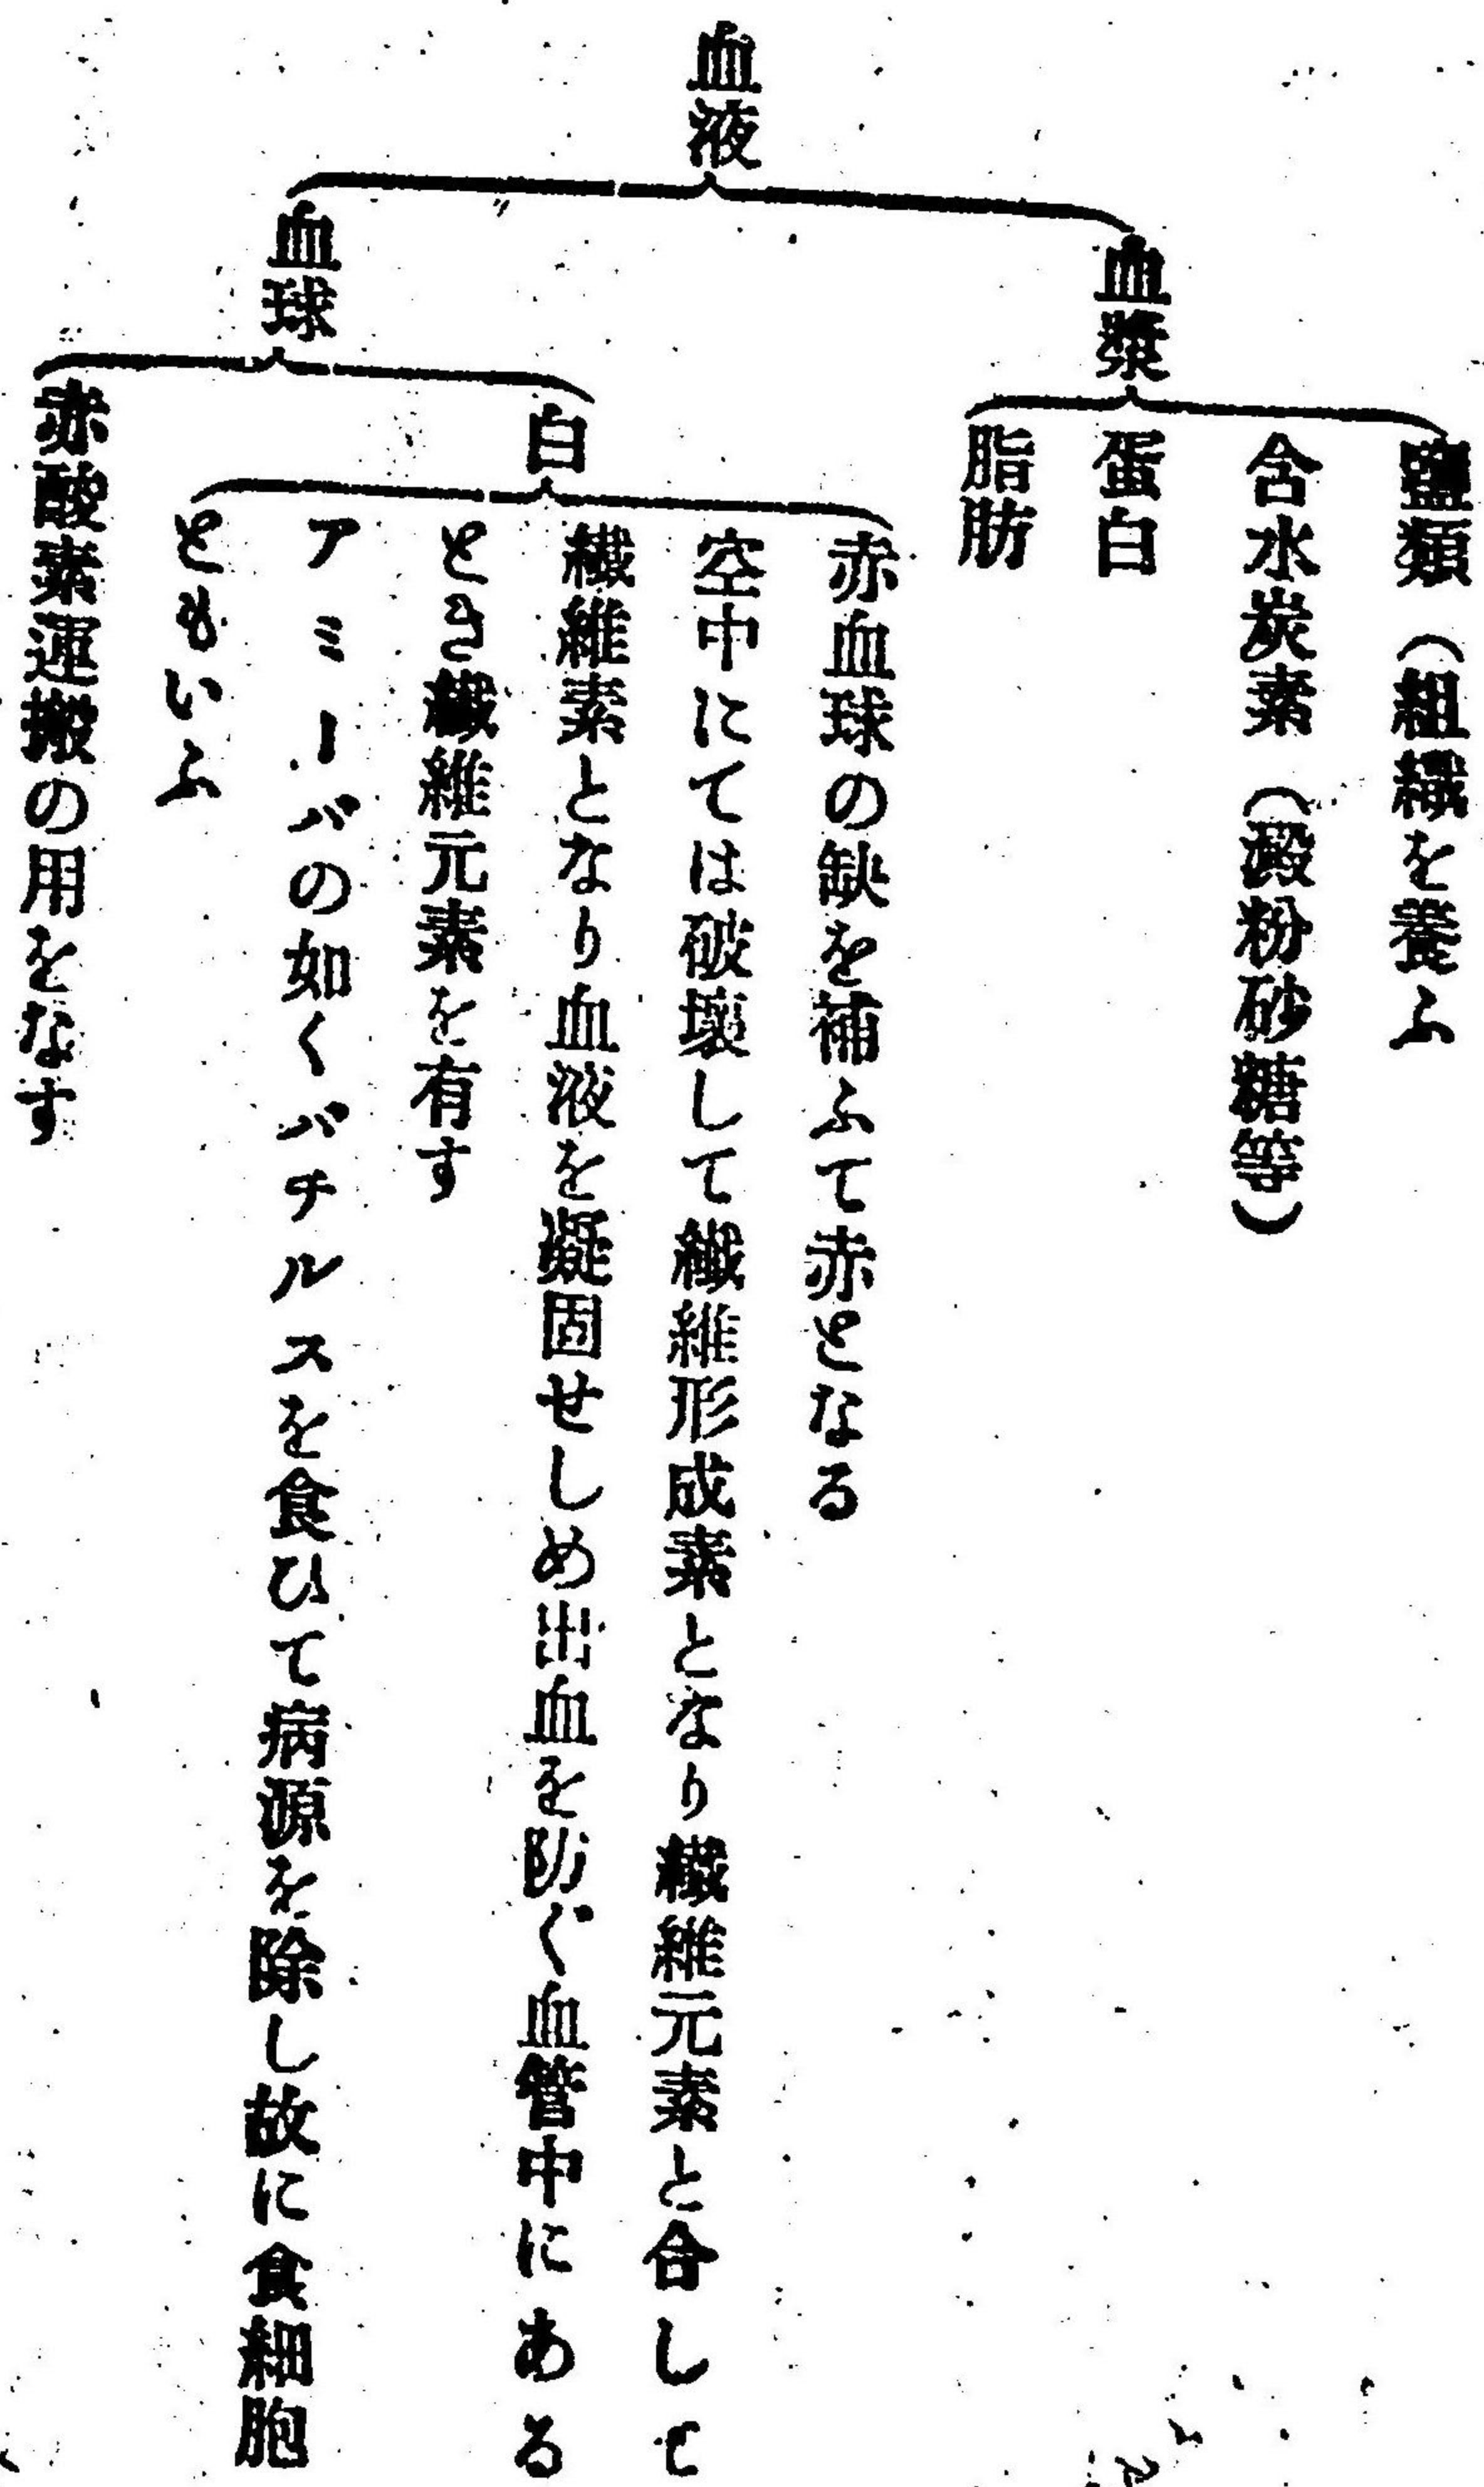 血液
血漿
鹽類（組織を養ふ
含水炭素（澱粉砂糖等）
蛋白
脂肪
血球
白
赤血球の缺を補ふて赤となる
空中にては破壞して纖維形成素となり纖維元素と合して
纖維素となり血液を凝固せしめ出血を防ぐ血管中にある
とき纖維元素を有す
アミーバの如くバチルスを食ひて病源を除し故に食細胞
ともいふ
赤酸素運搬の用をなす